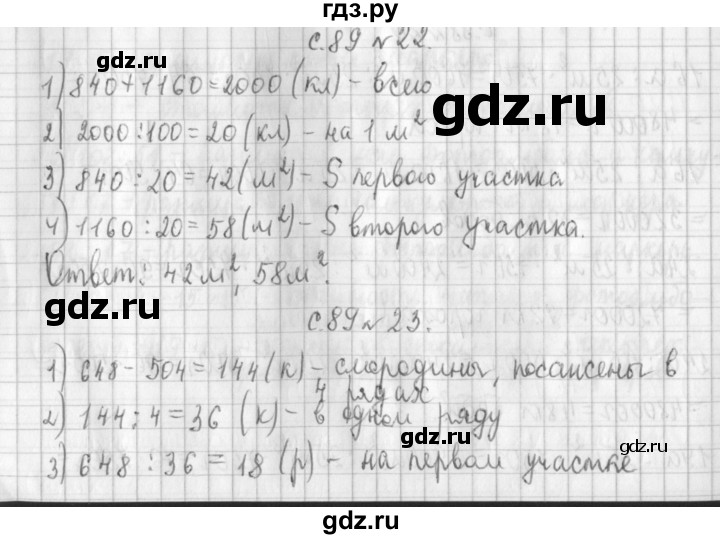 гдз.ру
с.89 №22.
gdz.ru
1) 840+1160=2000 (кл) - всего
2) 2000:100=20 (кл) - на 1 м²
3) 840:20=42 (м²) - S первого участка
gdz.ru
4) 1160:20=58 (м²) - S второго участка.
Ответ: 42м²; 58м².
gdz.ru
с.89 №23.
1) 648-504=144 (к) - смородины, посажены в
4 рядах
2) 144:4=36 (к) - в одном ряду
gdz.ru
gdz.ru
3) 648:36=18 (р) - на первом участке
gdz.ru
gdz.ru